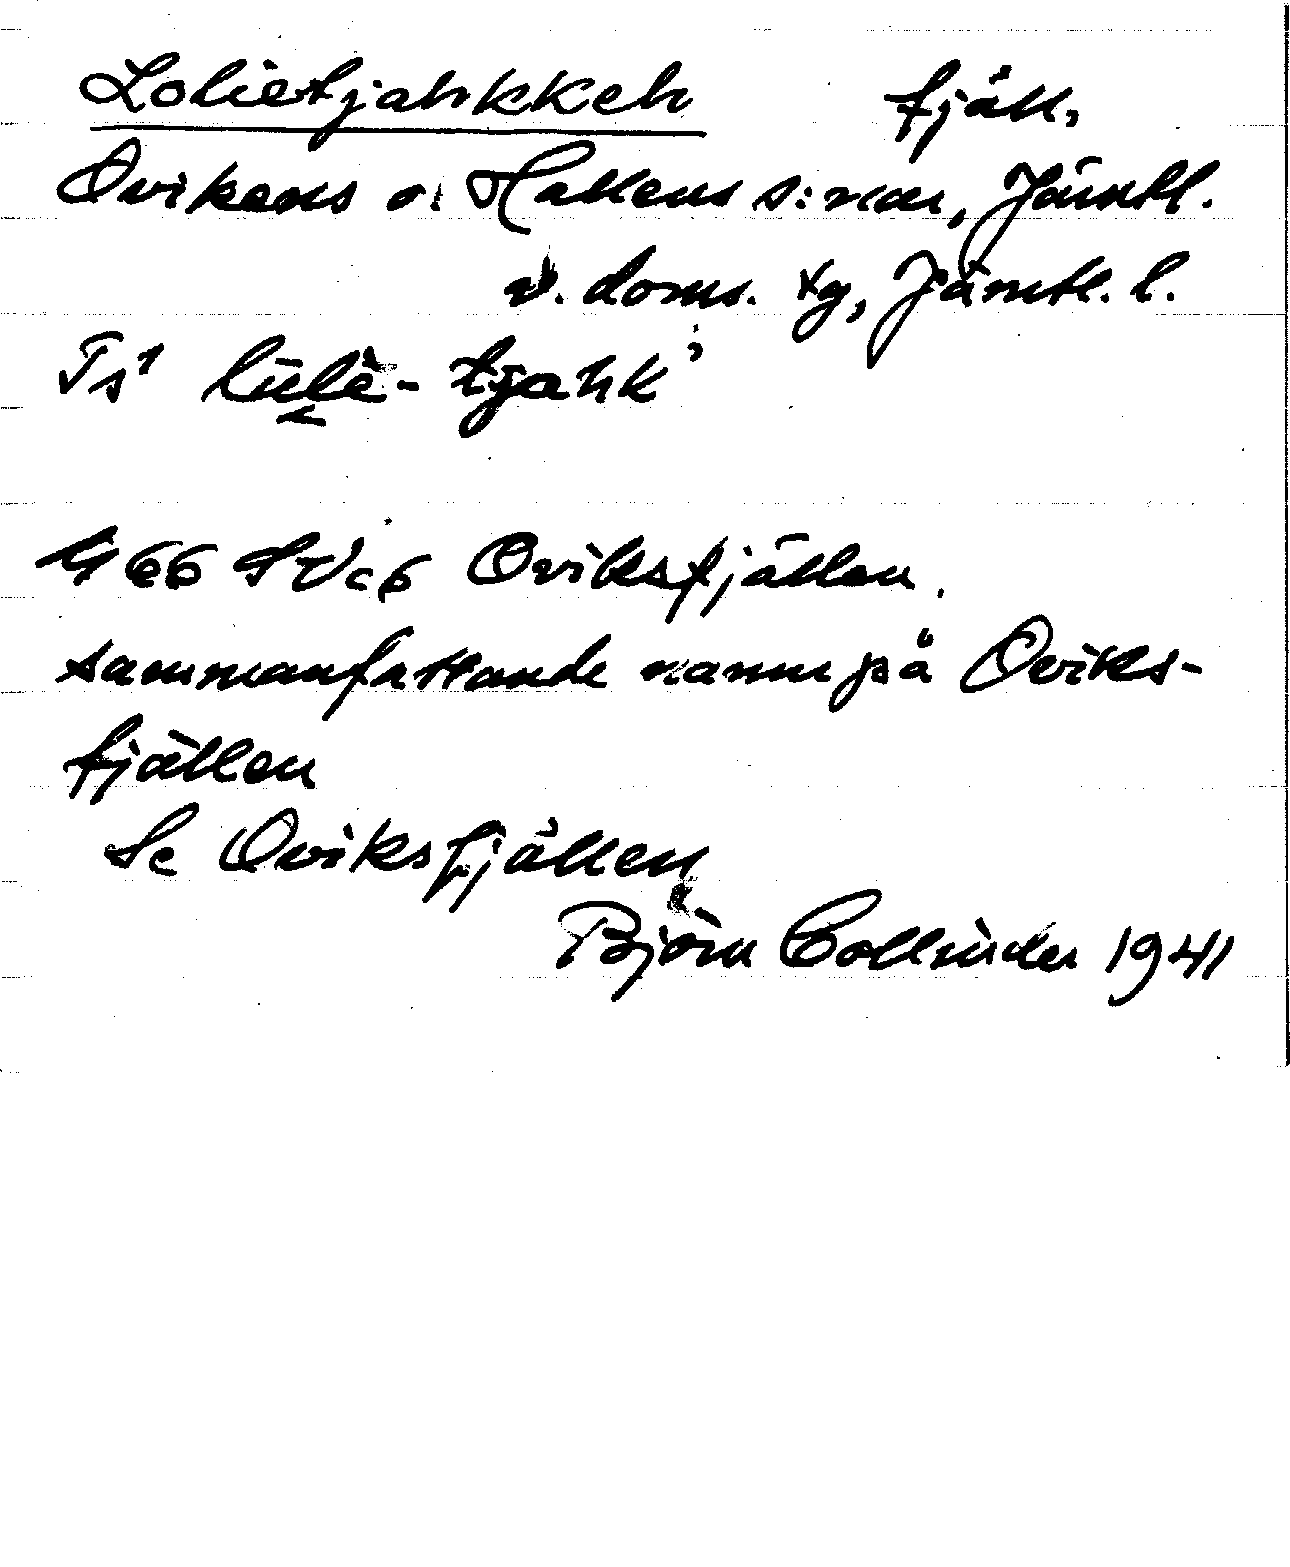 Lolietjahkkeh fjäll,
Ovikens o. Hallens s:nar, Jämtl.
v. doms. tg, Jämtl. l.
lulē- tjahk'
G 66 SV c6 Oviksfjällen.
sammanfattande namn på Oviks-
fjällen
Se Oviksfjällen
Björn Collinder 1941